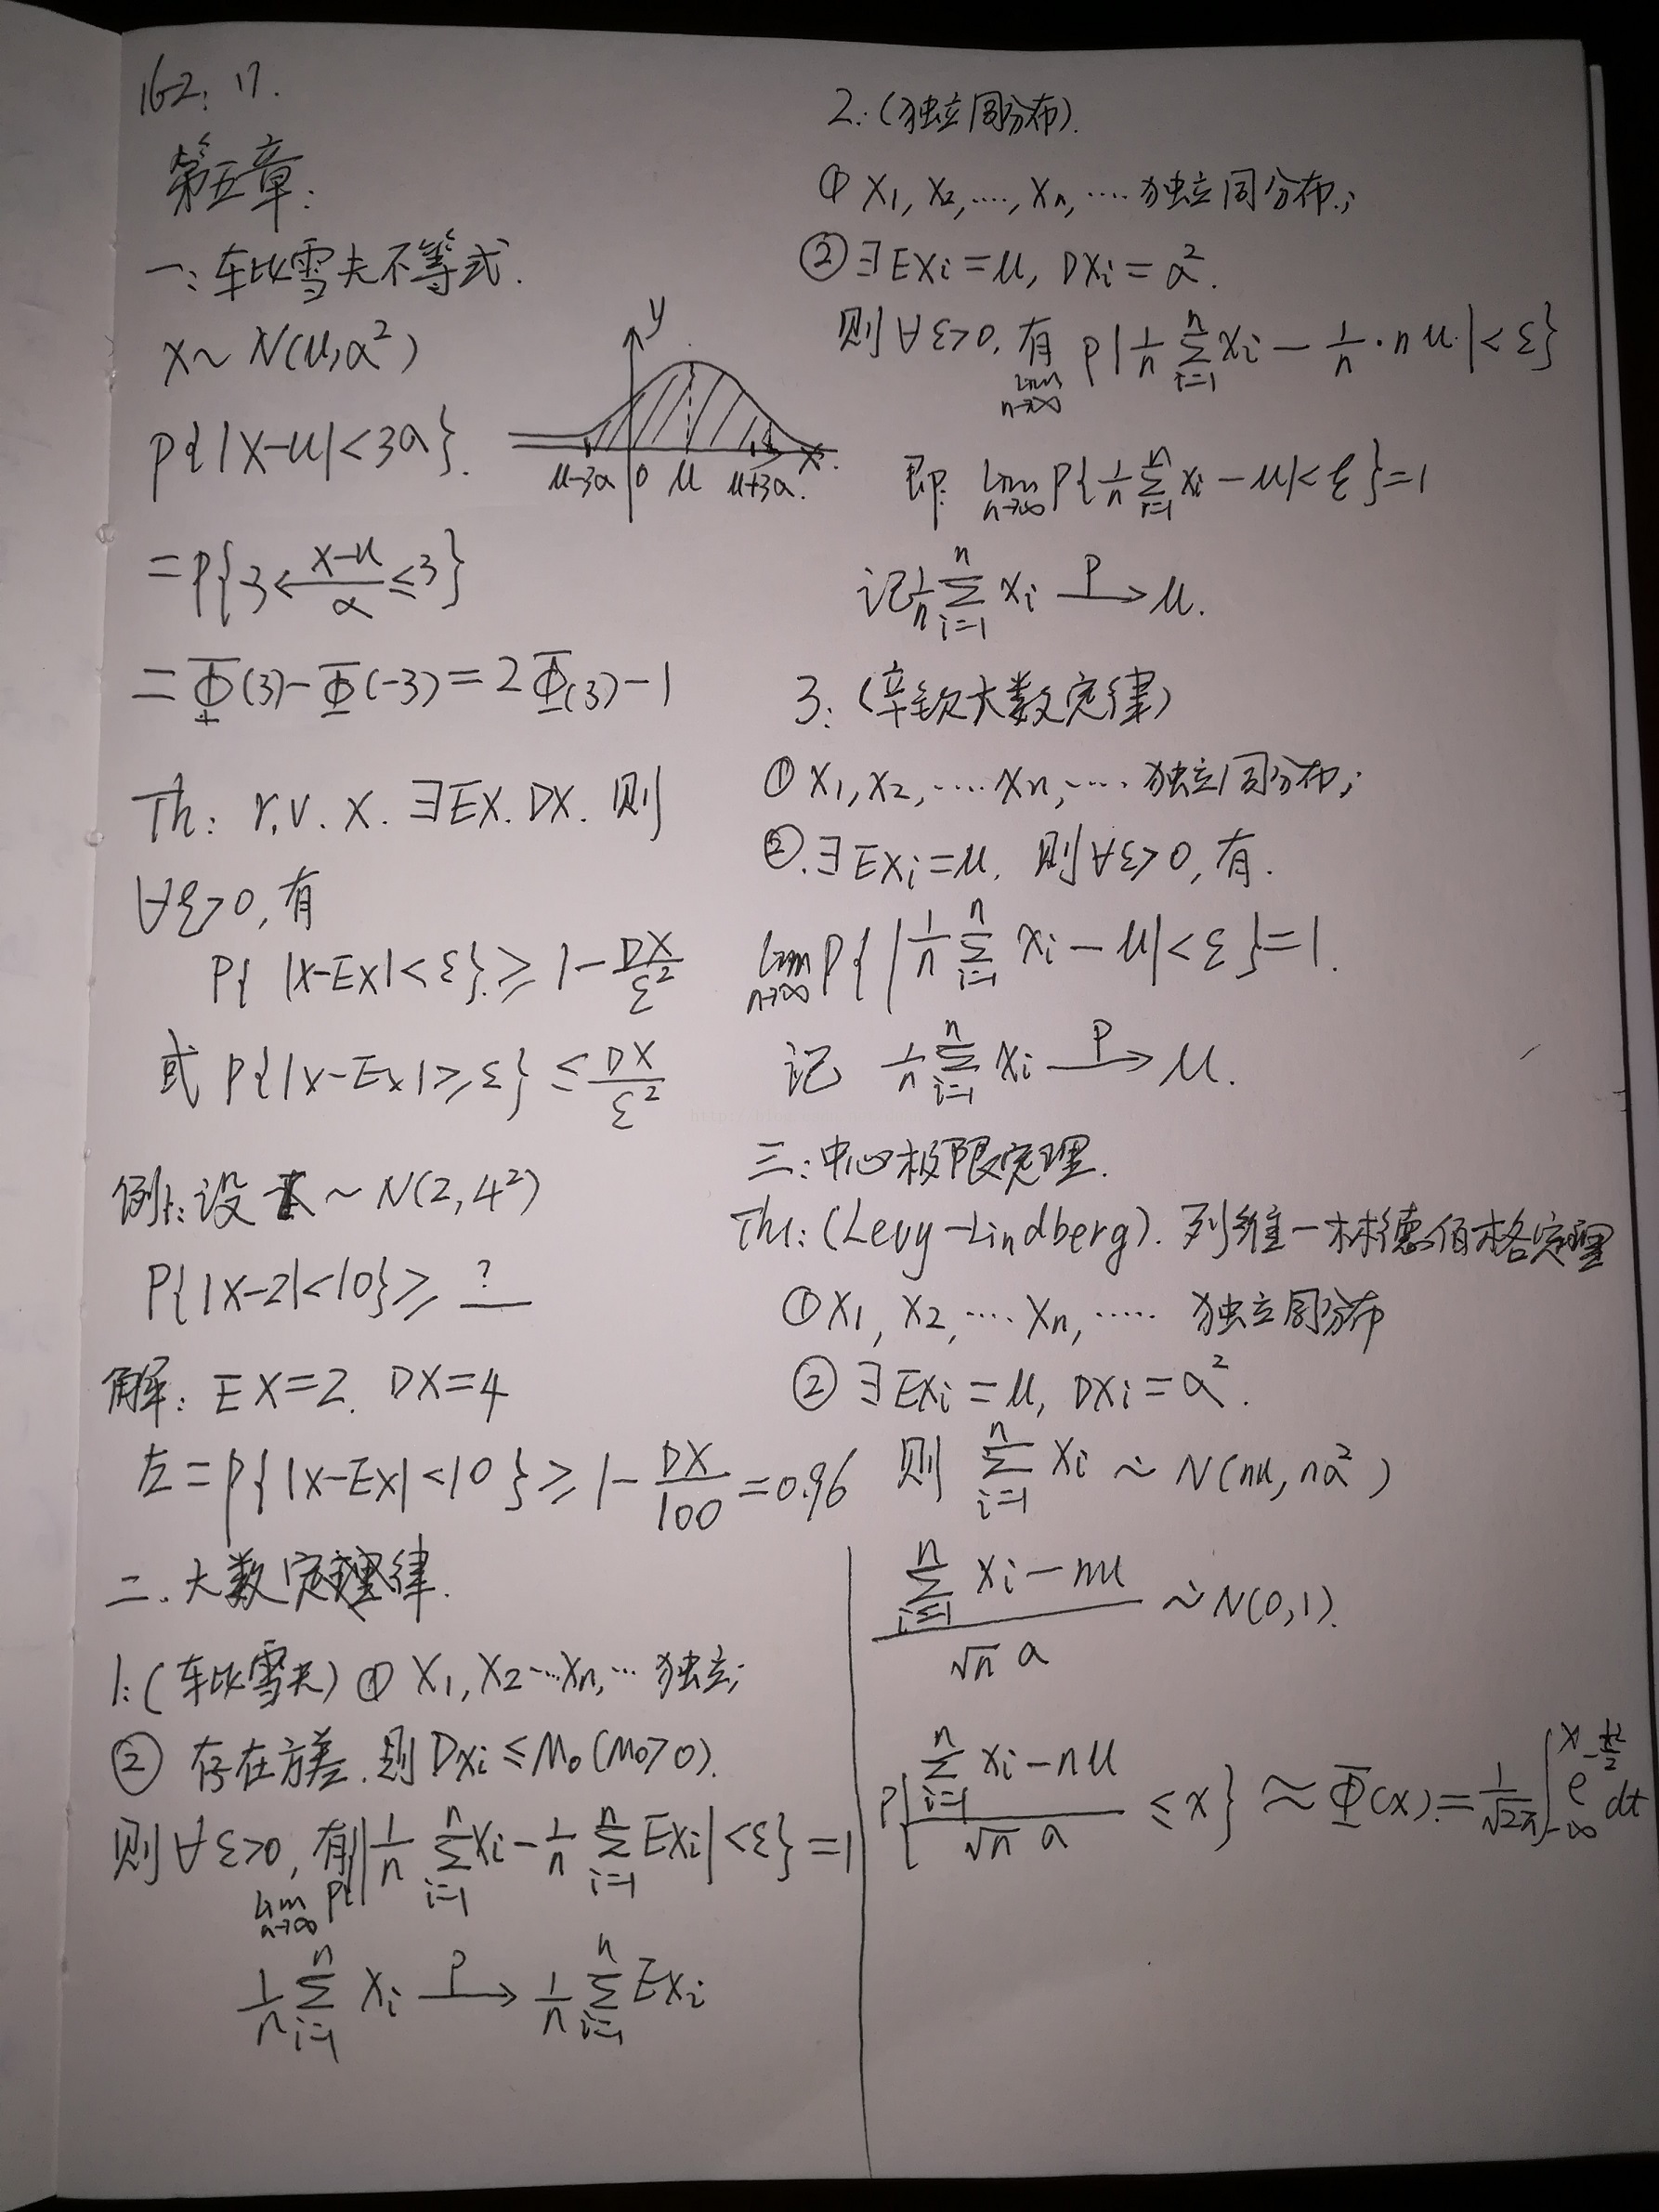 162: 17.
第五章:
一: 车比雪夫不等式.
X~N(μ,α²)
P{|X-μ|<3α}.
y
μ-3α 0 μ μ+3α. x
=P{-3<(X-μ)/α≤3}
=Φ(3)-Φ(-3)=2Φ(3)-1
Th: r.v. X. ∃EX. DX. 则
∀ε>0,有
P{|X-EX|<ε}≥1-DX/ε²
或 P{|X-EX|≥ε}≤DX/ε²
例1:设 X~N(2,4²)
P{|X-2|<10}≥ ?
解: EX=2. DX=4
左=P{|X-EX|<10}≥1-DX/100=0.96
二.大数定律.
1:(车比雪夫)① X1,X2…Xn,…独立;
② 存在方差.则DXi≤M0(M0>0).
则∀ε>0,有 lim n→∞ P{|1/n Σ i=1 n Xi-1/n Σ i=1 n EXi|<ε}=1
1/n Σ i=1 n Xi P→ 1/n Σ i=1 n EXi
2:(独立同分布).
① X1,X2,…,Xn,…独立同分布;
②∃EXi=μ, DXi=α².
则∀ε>0,有 lim n→∞ P|1/n Σ i=1 n Xi-1/n·nμ|<ε}
即 lim n→∞ P{1/n Σ i=1 n Xi-μ|<ε}=1
记1/n Σ i=1 n Xi P→ μ.
3:(辛钦大数定律)
①X1,X2,…Xn,…独立同分布;
②.∃EXi=μ. 则∀ε>0,有.
lim n→∞ P{|1/n Σ i=1 n Xi-μ|<ε}=1.
记 1/n Σ i=1 n Xi P→ μ.
三:中心极限定理.
Th1:(Levy-Lindberg).列维-林德伯格定理
①X1,X2,…Xn,…独立同分布
②∃EXi=μ, DXi=α².
则 Σ i=1 n Xi ~ N(nμ,nα²)
(Σ i=1 n Xi-nμ)/(√n α) ~ N(0,1).
P{(Σ i=1 n Xi-nμ)/(√n α)≤x}≈Φ(x)=1/√2π ∫-∞ x e^(-t²/2) dt